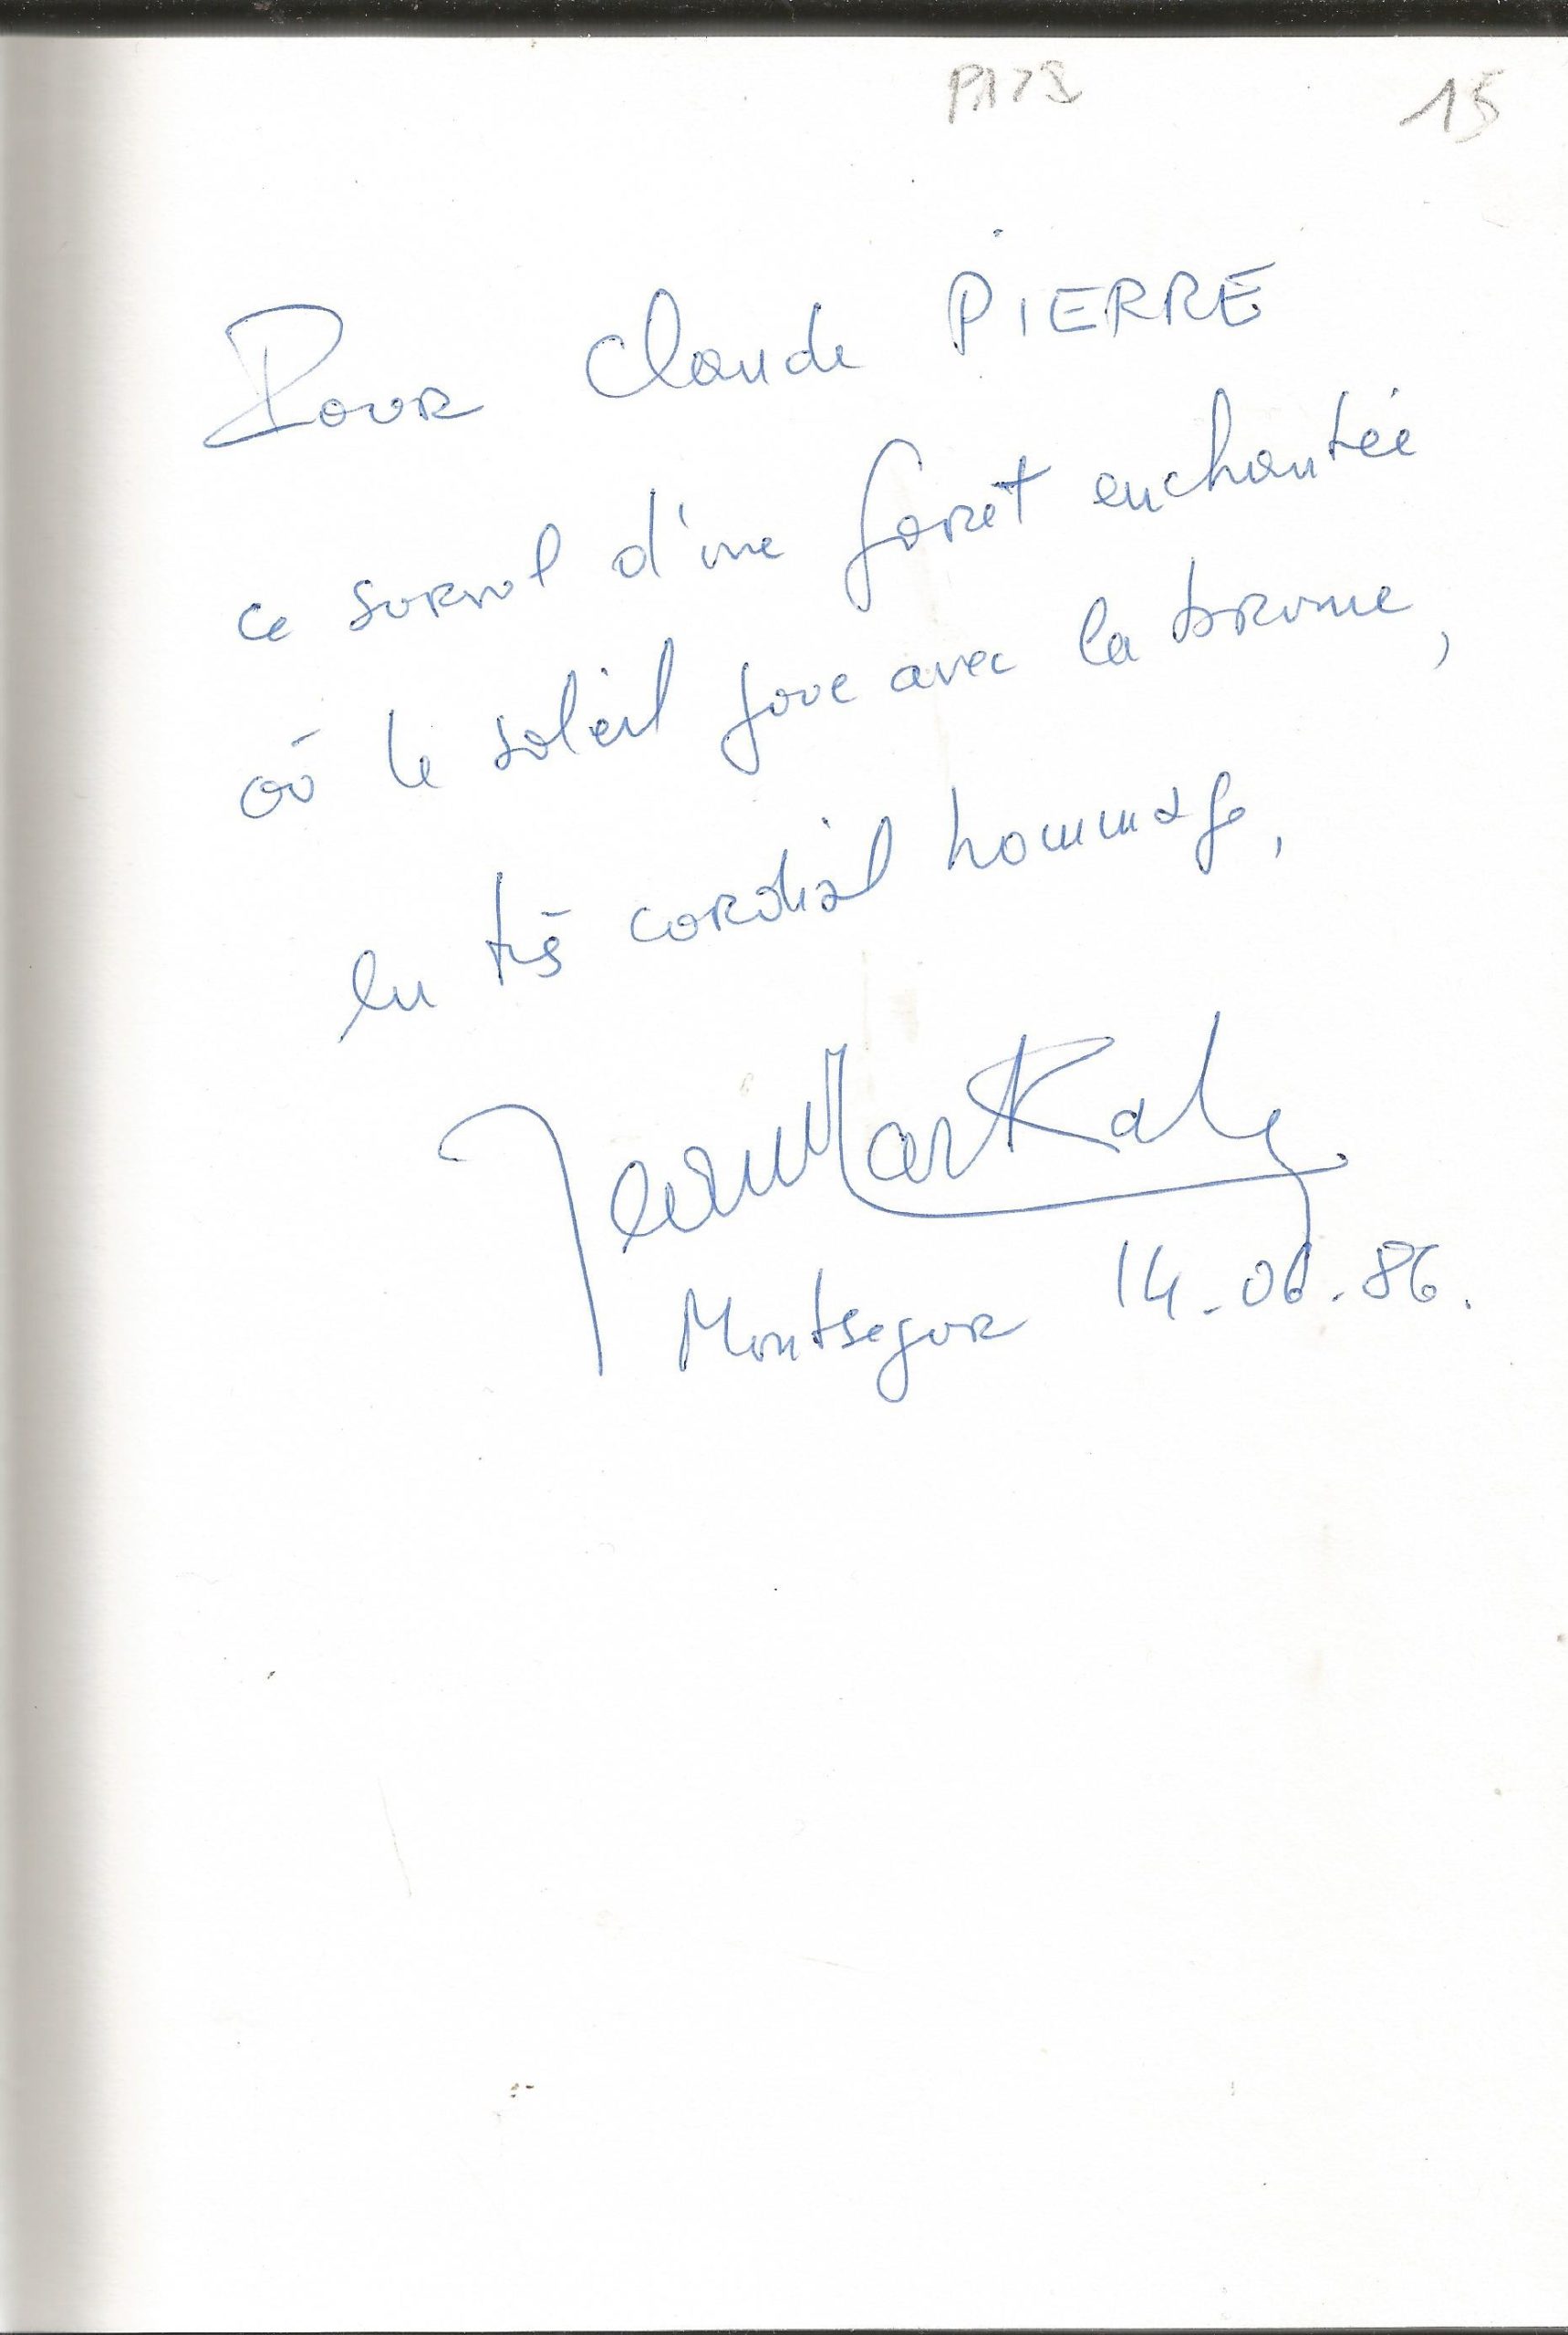 15
Pour Claude PIERRE
ce survol d'une forêt enchantée
où le soleil joue avec la brume,
en très cordial hommage,
Jean Markale
Montsegur 14-06.86.